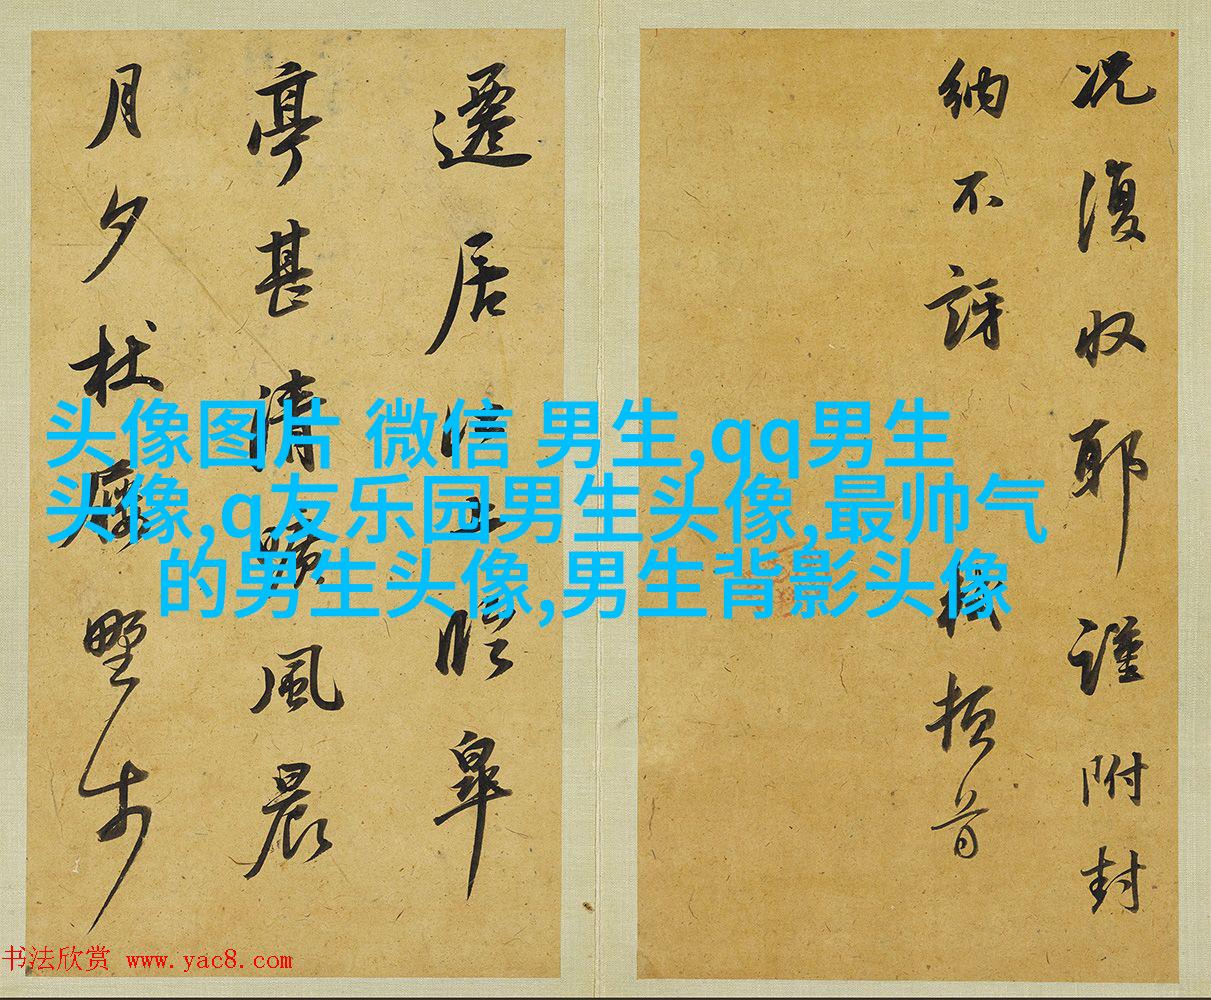 况復收耶謹附封
納不訝
頓首
遷居
皋
亭甚清曠風晨
月夕杖屨野步
头像图片 微信 男生,qq男生
头像,q友乐园男生头像,最帅气
的男生头像,男生背影头像
书法欣赏 www.yac8.com